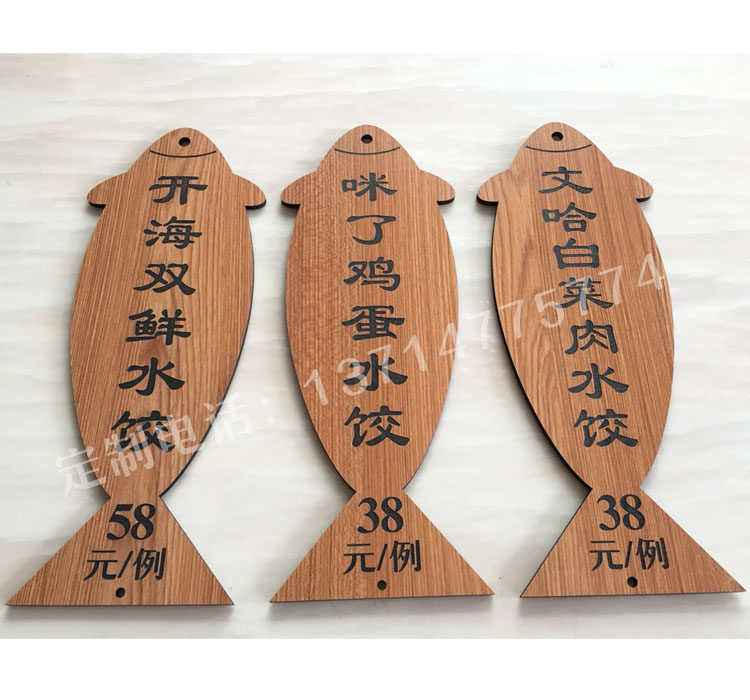 开海双鲜水饺
58
元/例
咪了鸡蛋水饺
38
元/例
文哈白菜肉水饺
38
元/例
定制电话：13714775774